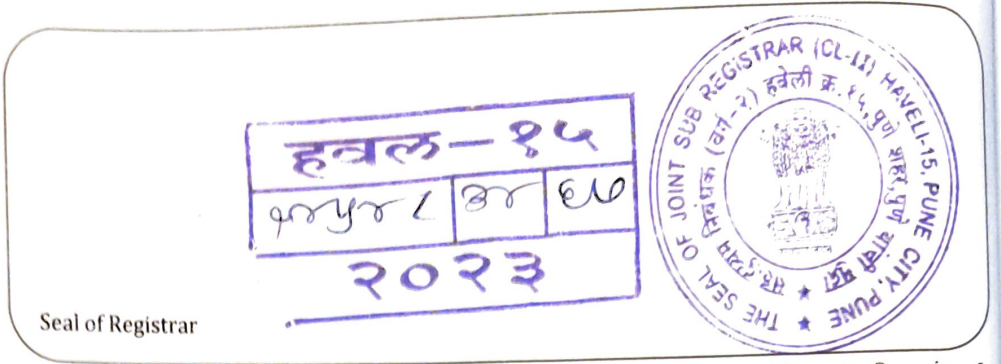 हवल – १५
२०२३
Seal of Registrar
THE SEAL OF JOINT SUB REGISTRAR (CL-II) HAVELI-15, PUNE CITY, PUNE
सह. दुय्यम निबंधक (वर्ग-२) हवेली क्र. १५, पुणे शहर, पुणे यांची मुद्रा